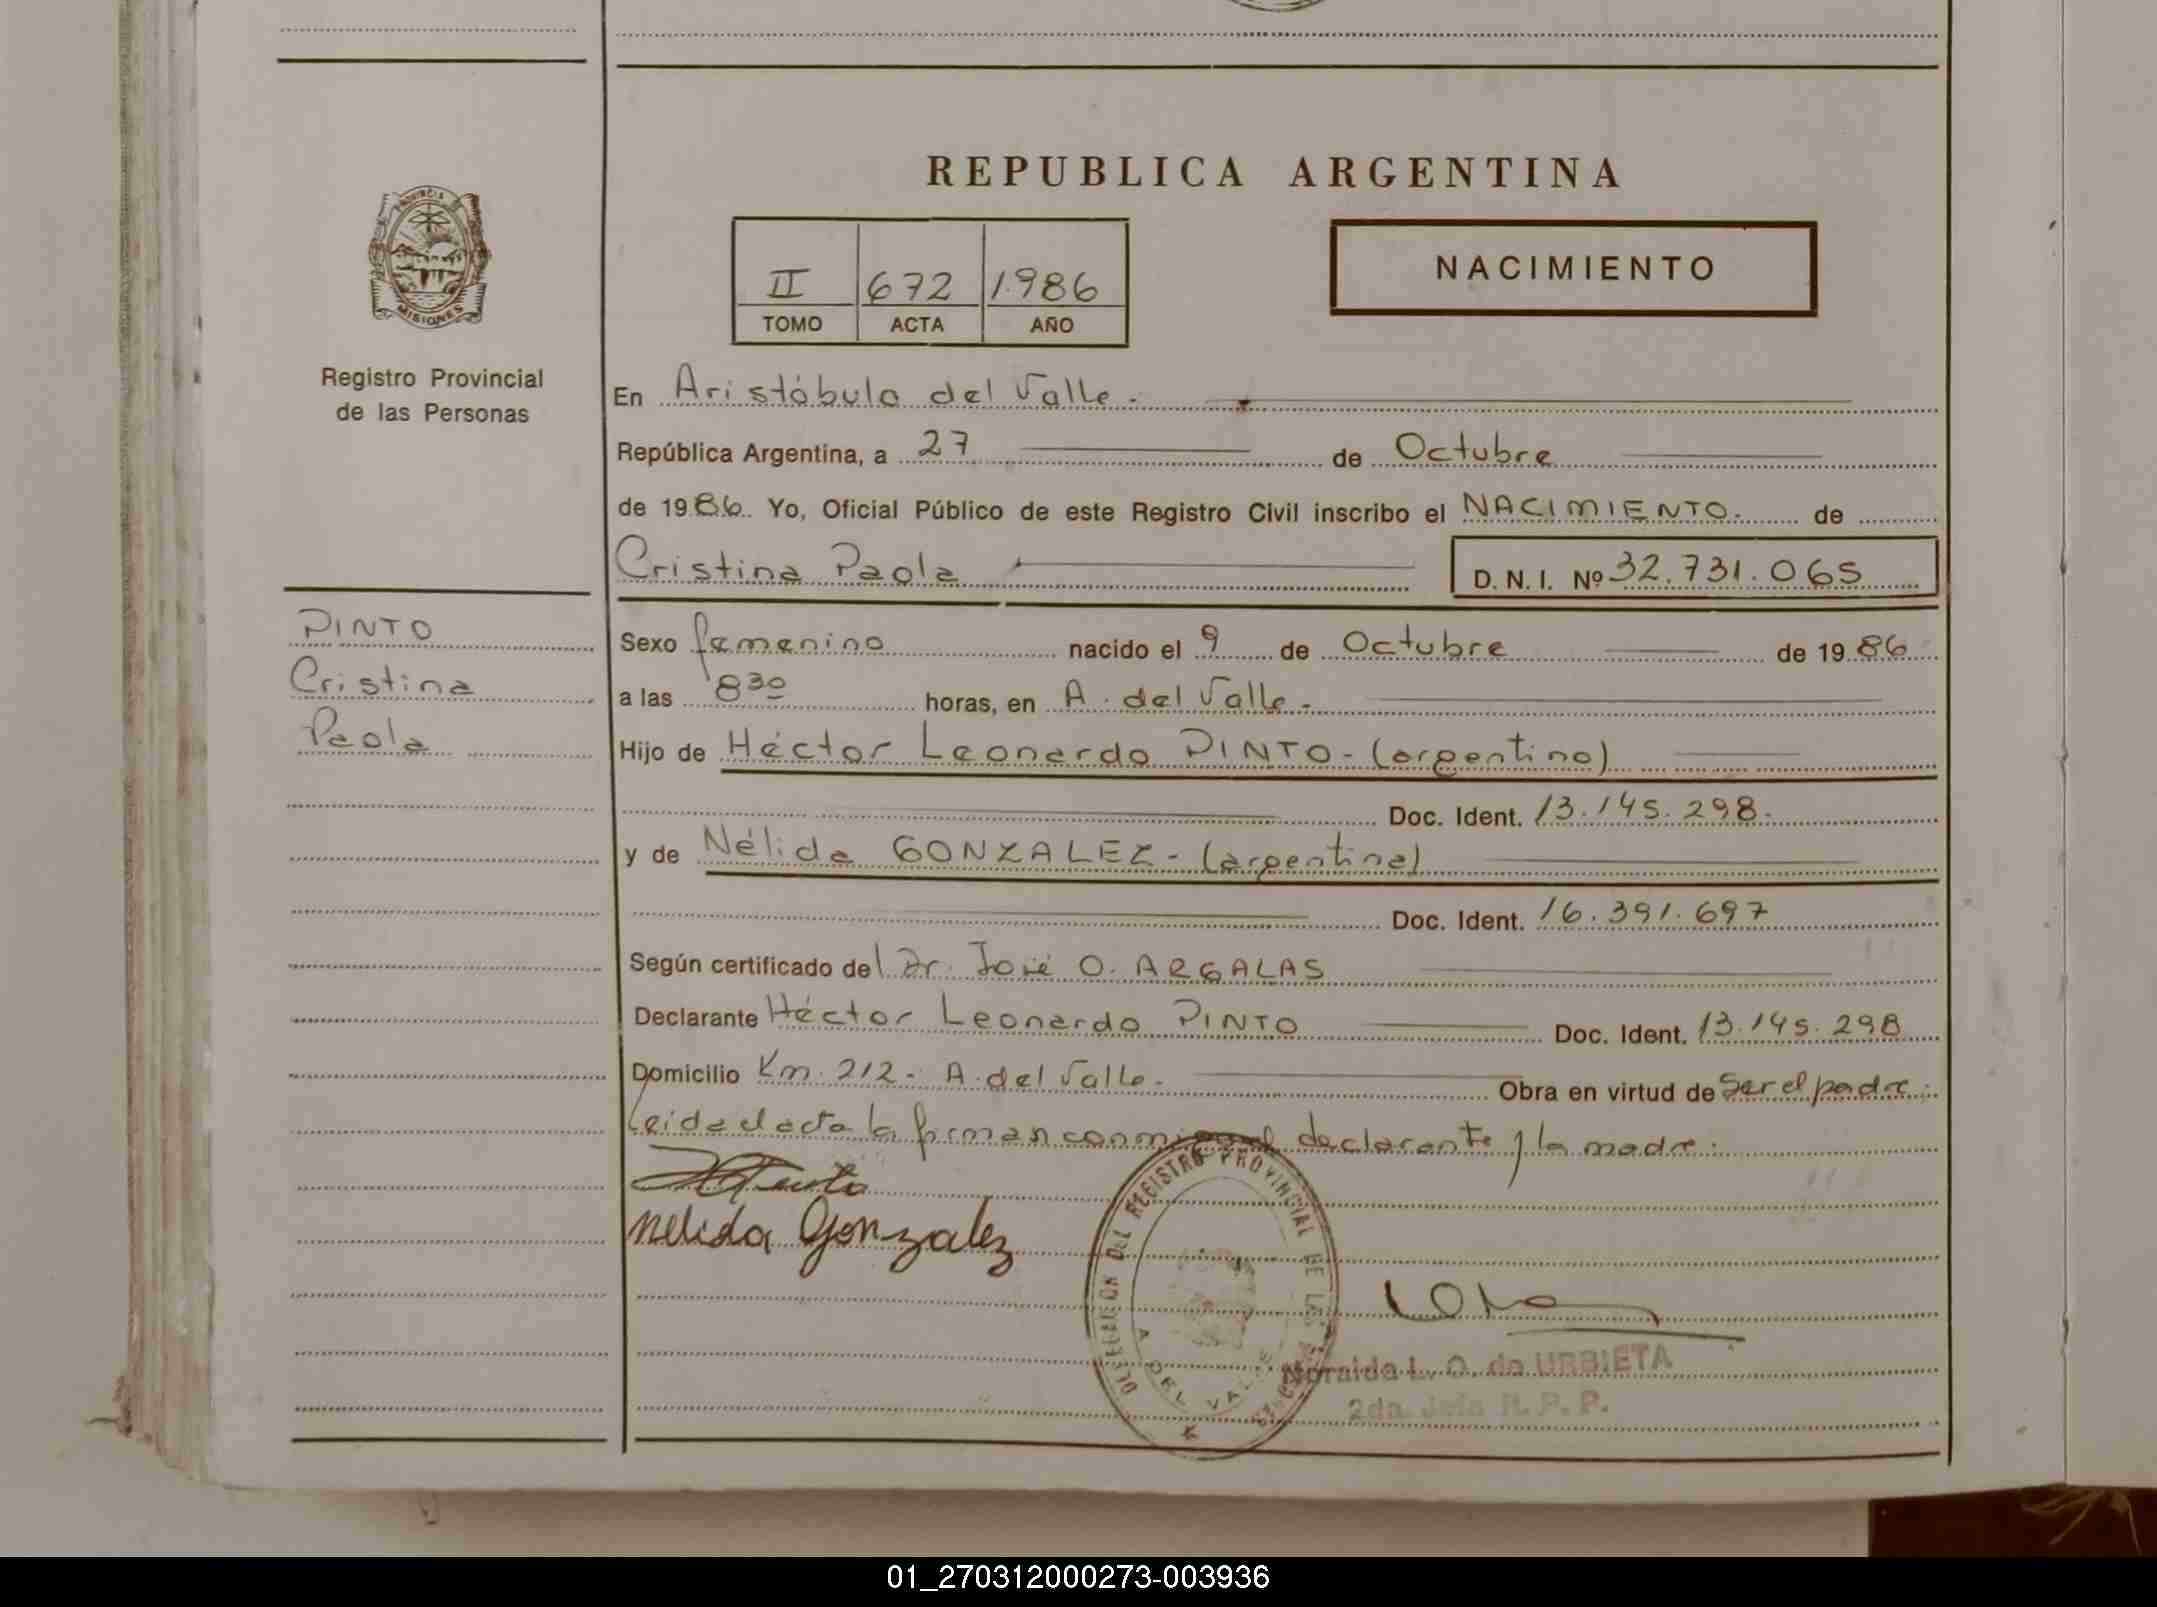 REPUBLICA ARGENTINA
NACIMIENTO
II 672 1.986
TOMO ACTA AÑO
PROVINCIA
MISIONES
Registro Provincial
de las Personas
En Aristóbulo del Valle.-
República Argentina, a 27 de Octubre
de 1986. Yo, Oficial Público de este Registro Civil inscribo el NACIMIENTO.- de
Cristina Paola D. N. I. Nº 32.731.065
PINTO
Cristina
Paola
Sexo femenino nacido el 9 de Octubre de 1986
a las 8 30 horas, en A. del Valle.-
Hijo de Héctor Leonardo PINTO-(argentino)
Doc. Ident. 13.145.298.
y de Nélida GONZALEZ-(argentina)
Doc. Ident. 16.391.697
Según certificado del Dr. José O. ARGALAS
Declarante Héctor Leonardo PINTO Doc. Ident. 13.145.298
Domicilio Km. 212- A. del Valle.- Obra en virtud de ser el padre.
Leida el acta la firman conmigo el declarante y la madre.
Nelida Gonzalez
DELEGACION DEL REGISTRO PROVINCIAL DE LAS PERSONAS
A. DEL VALLE
Noraida L. O. de URBIETA
2da. Jefa R. P. P.
01_270312000273-003936